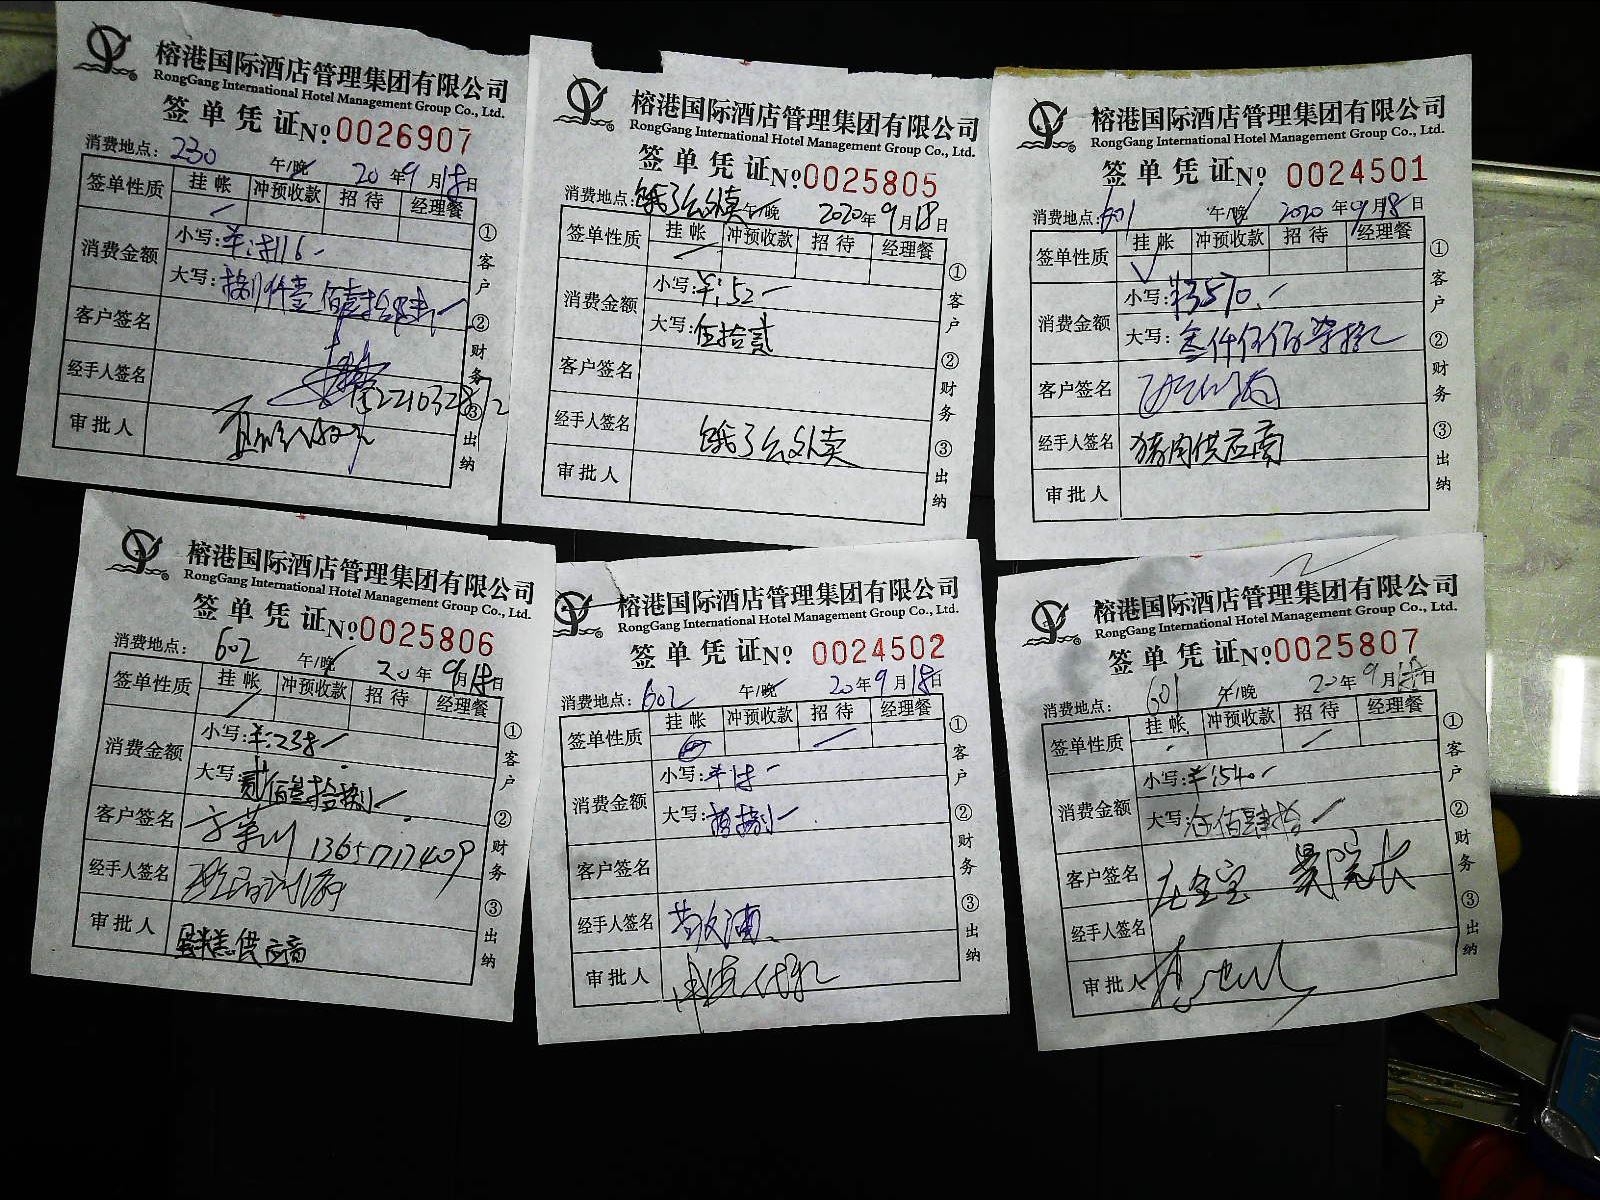 榕港国际酒店管理集团有限公司
RongGang International Hotel Management Group Co., Ltd.
签单凭证 No 0026907
消费地点: 230 午/晚 20年9月18日
签单性质 挂帐 冲预收款 招待 经理餐
消费金额 小写: ¥:8116
大写: 捌仟壹佰壹拾陆
客户签名
经手人签名
审批人
①客户 ②财务 ③出纳
榕港国际酒店管理集团有限公司
RongGang International Hotel Management Group Co., Ltd.
签单凭证 No 0025805
消费地点: 饿了么外卖 午/晚 2020年9月18日
签单性质 挂帐 冲预收款 招待 经理餐
消费金额 小写: ¥:52
大写: 伍拾贰
客户签名
经手人签名 饿了么外卖
审批人
①客户 ②财务 ③出纳
榕港国际酒店管理集团有限公司
RongGang International Hotel Management Group Co., Ltd.
签单凭证 No 0024501
消费地点: 601 午/晚 2020年9月18日
签单性质 挂帐 冲预收款 招待 经理餐
消费金额 小写: ¥3570.
大写: 叁仟伍佰柒拾元
客户签名
经手人签名 猪肉供应商
审批人
①客户 ②财务 ③出纳
榕港国际酒店管理集团有限公司
RongGang International Hotel Management Group Co., Ltd.
签单凭证 No 0025806
消费地点: 602 午/晚 20年9月18日
签单性质 挂帐 冲预收款 招待 经理餐
消费金额 小写: ¥:238
大写: 贰佰叁拾捌
客户签名 13657177409
经手人签名
审批人 蛋糕供应商
①客户 ②财务 ③出纳
榕港国际酒店管理集团有限公司
RongGang International Hotel Management Group Co., Ltd.
签单凭证 No 0024502
消费地点: 602 午/晚 20年9月18日
签单性质 挂帐 冲预收款 招待 经理餐
消费金额 小写: ¥18
大写: 拾捌
客户签名
经手人签名
审批人
①客户 ②财务 ③出纳
榕港国际酒店管理集团有限公司
RongGang International Hotel Management Group Co., Ltd.
签单凭证 No 0025807
消费地点: 601 午/晚 20年9月18日
签单性质 挂帐 冲预收款 招待 经理餐
消费金额 小写: ¥540
大写: 伍佰肆拾
客户签名 庄全宝 院长
经手人签名
审批人
①客户 ②财务 ③出纳